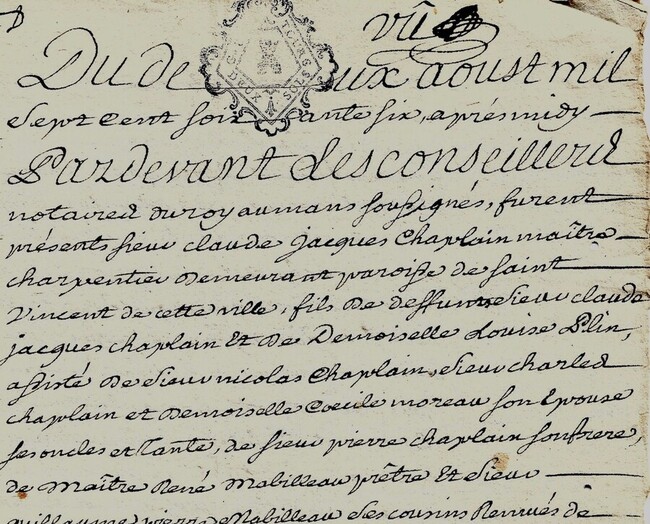 vû
Du deux aoust mil
Sept cent soixante six, après midy
Pardevant Les conseillers
notaires du roy au mans soussignés, furent
présents sieur claude jacques Chaplain maître
charpentier demeurant paroisse de saint
Vincent de cette ville, fils de deffunt sieur claude
jacques chaplain Et de Demoiselle Louise Plin,
assisté de sieur nicolas Chaplain, sieur charles
chaplain et demoiselle Cecile moreau son Epouse
ses oncles et tante, de sieur pierre chaplain son frere,
de Maître René Mabilleau prêtre Et sieur
guillaume pierre Mabilleau ses cousins de